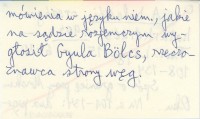 mówienia w języku niem., jakie
na sądzie rozjemczym wy-
głosił Gyula Bölcs, rzeczo-
znawca strony węg.